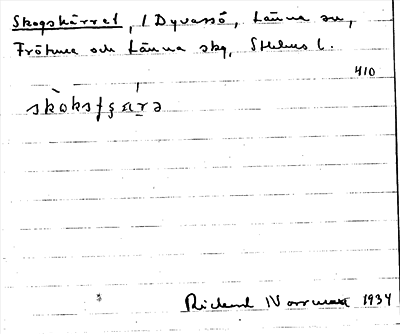 Skogskärret, i Dyvassö, Länna sn,
Frötuna och Länna skg, Sthlms l.
410
skòksʃçæ̀rə
Rickard Norrman 1934